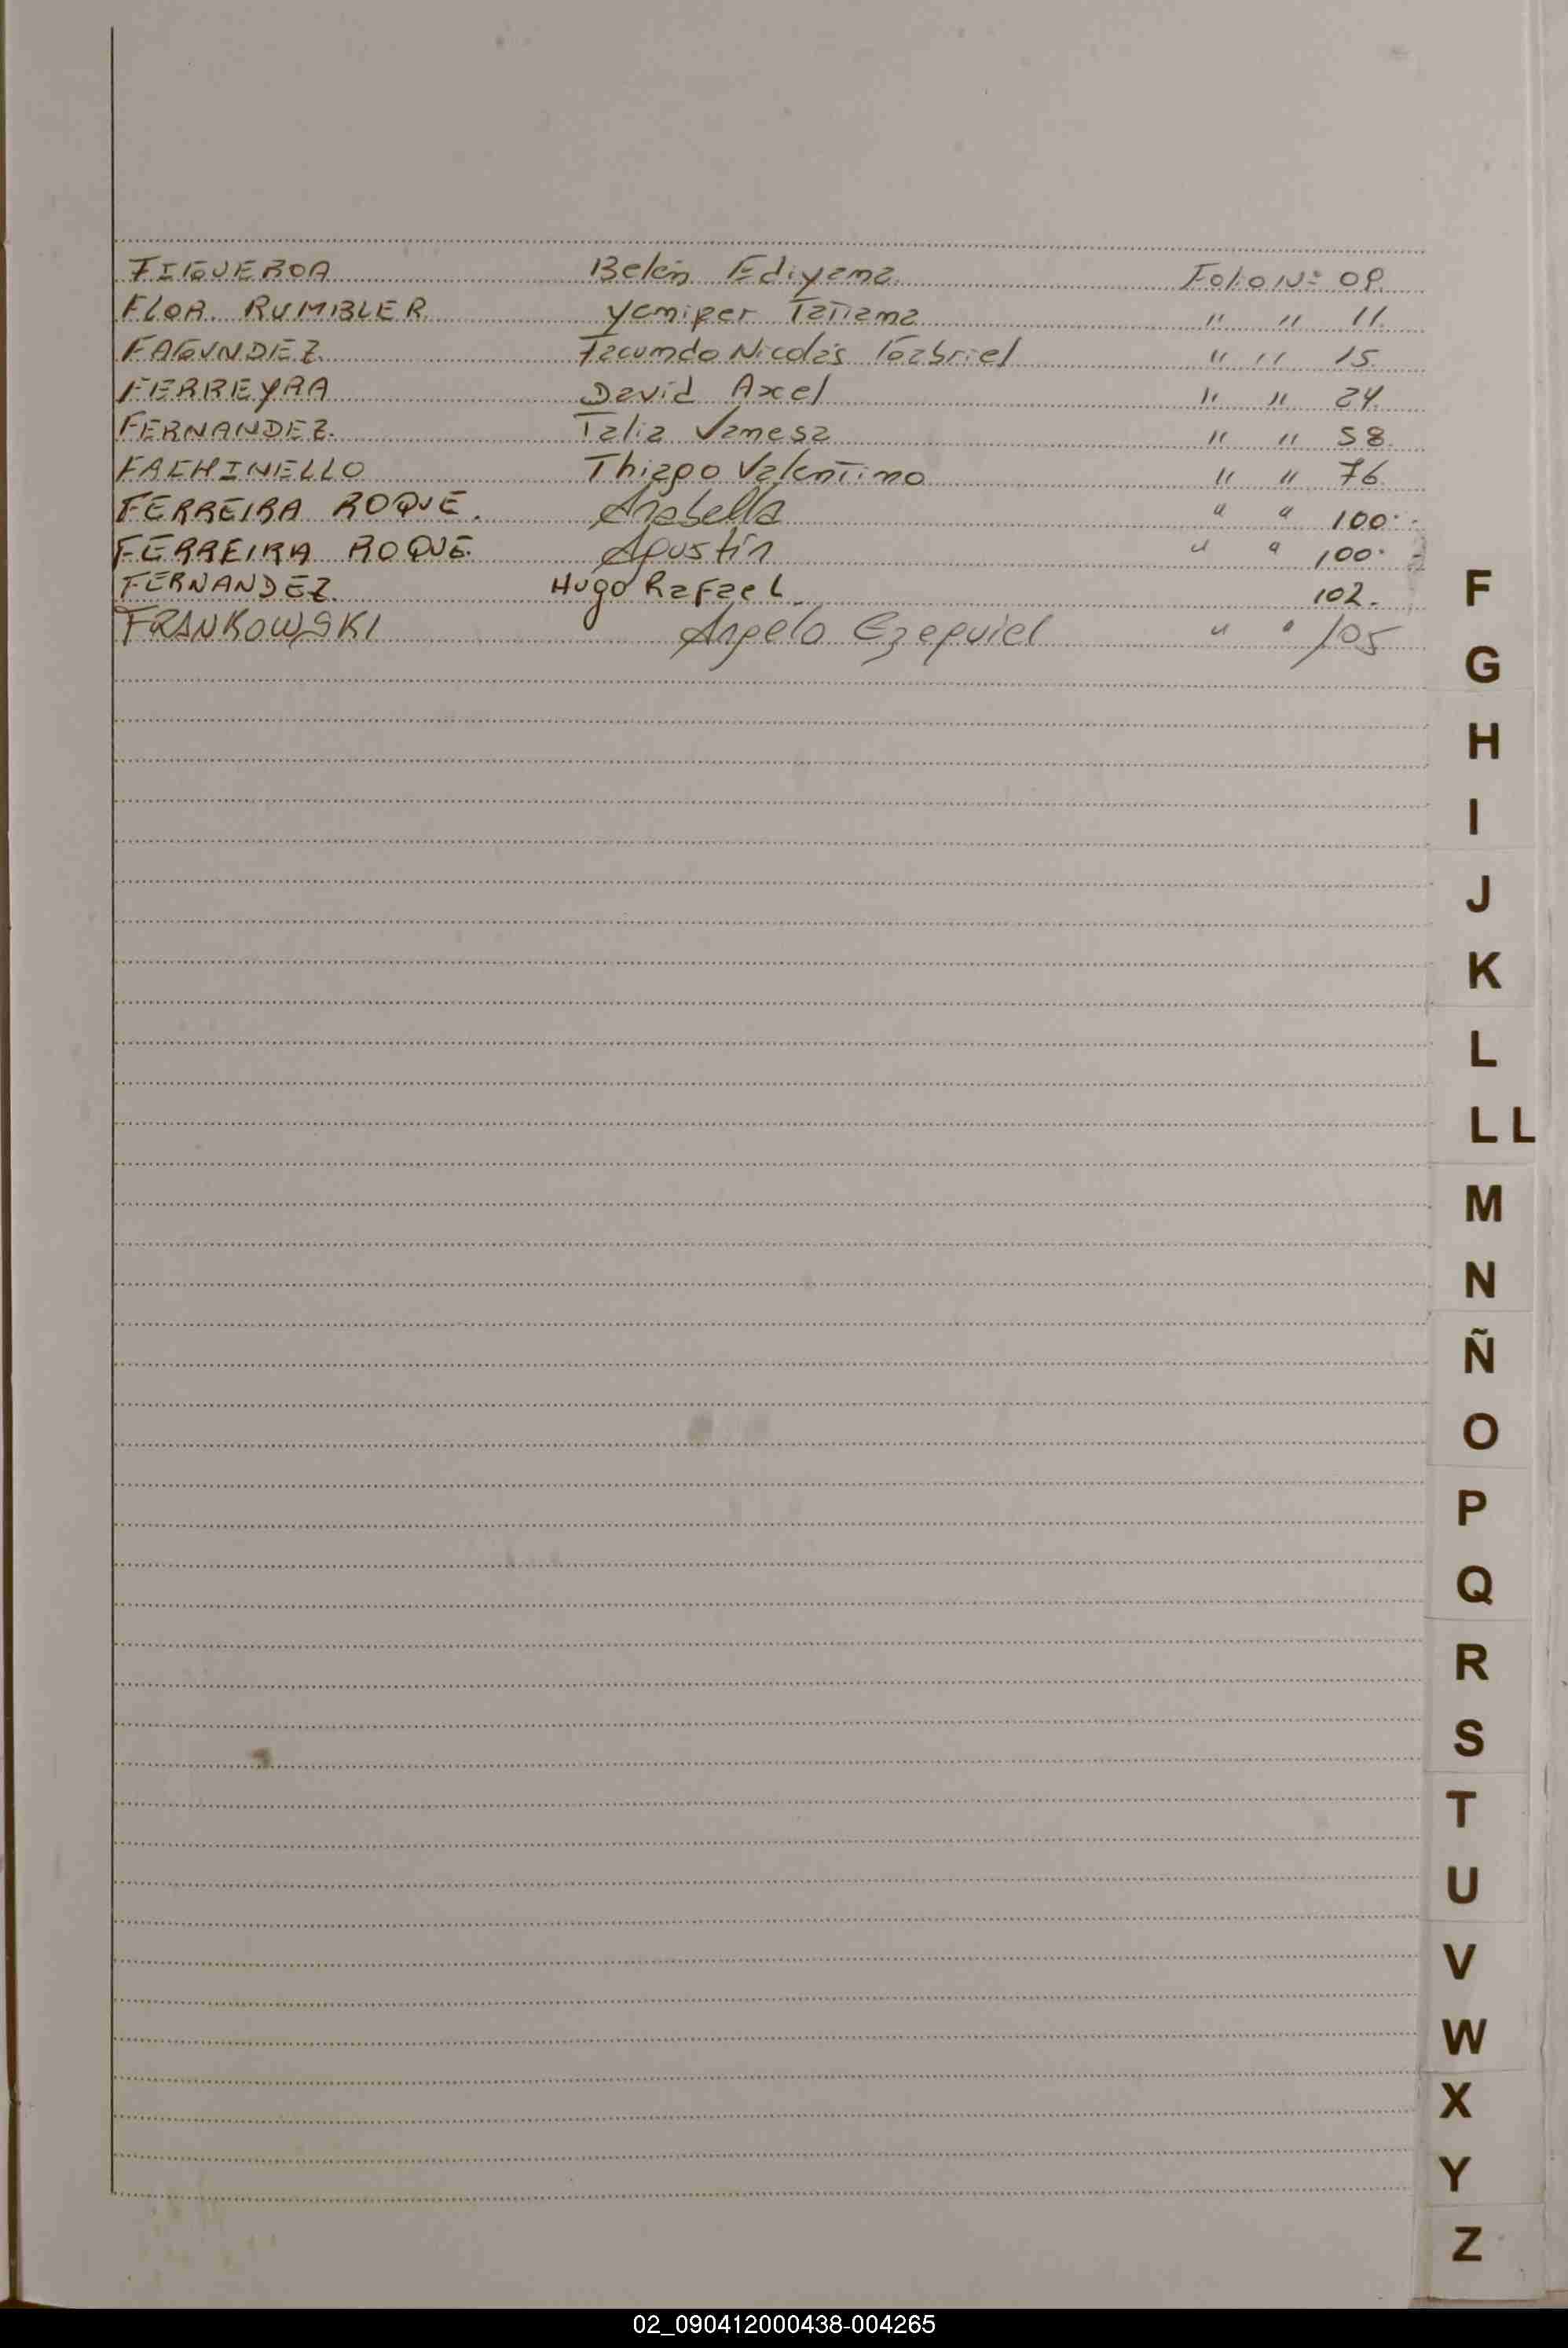 FIGUEROA Belén Ediyana Folio Nº 09.
FLOR RUMBLER Yenifer Tatiana " " 11.
FAGUNDEZ Facundo Nicolás Gabriel " " 15.
FERREYRA David Axel " " 24.
FERNANDEZ. Talia Vanesa " " 58.
FACHINELLO Thiago Valentino " " 76
FERREIRA ROQUE. Anabella " " 100.
FERREIRA ROQUE. Agustín " " 100.
FERNANDEZ. Hugo Rafael 102.
FRANKOWSKI Angelo Ezequiel " " 105
F
G
H
I
J
K
L
LL
M
N
Ñ
O
P
Q
R
S
T
U
V
W
X
Y
Z
02_090412000438-004265